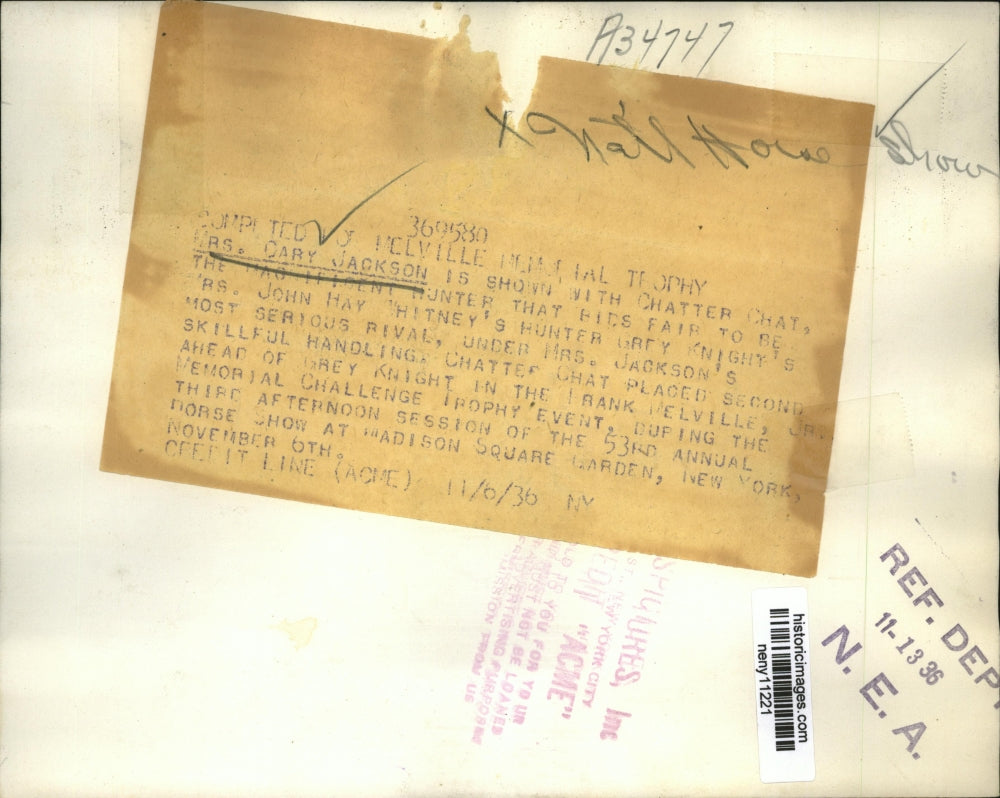 A34747
x Nat'l Horse Show
369580
COMPETED FOR MELVILLE MEMORIAL TROPHY
MRS. CARY JACKSON IS SHOWN WITH CHATTER CHAT,
THE MAGNIFICENT HUNTER THAT BIDS FAIR TO BE
MRS. JOHN HAY WHITNEY'S HUNTER GREY KNIGHT'S
MOST SERIOUS RIVAL, UNDER MRS. JACKSON'S
SKILLFUL HANDLING. CHATTER CHAT PLACED SECOND
AHEAD OF GREY KNIGHT IN THE FRANK MELVILLE, JR.
MEMORIAL CHALLENGE TROPHY EVENT, DURING THE
THIRD AFTERNOON SESSION OF THE 53RD ANNUAL
HORSE SHOW AT MADISON SQUARE GARDEN, NEW YORK,
NOVEMBER 6TH.
CREDIT LINE (ACME) 11/6/36 NY
SPICTURES, Inc
ST., NEW YORK CITY
EDIT "ACME"
LD TO YOU FOR YOUR
MUST NOT BE LOANED
ADVERTISING PURPOSES
MISSION FROM US
REF. DEPT
11-13 36
N. E. A.
historicimages.com
neny11221